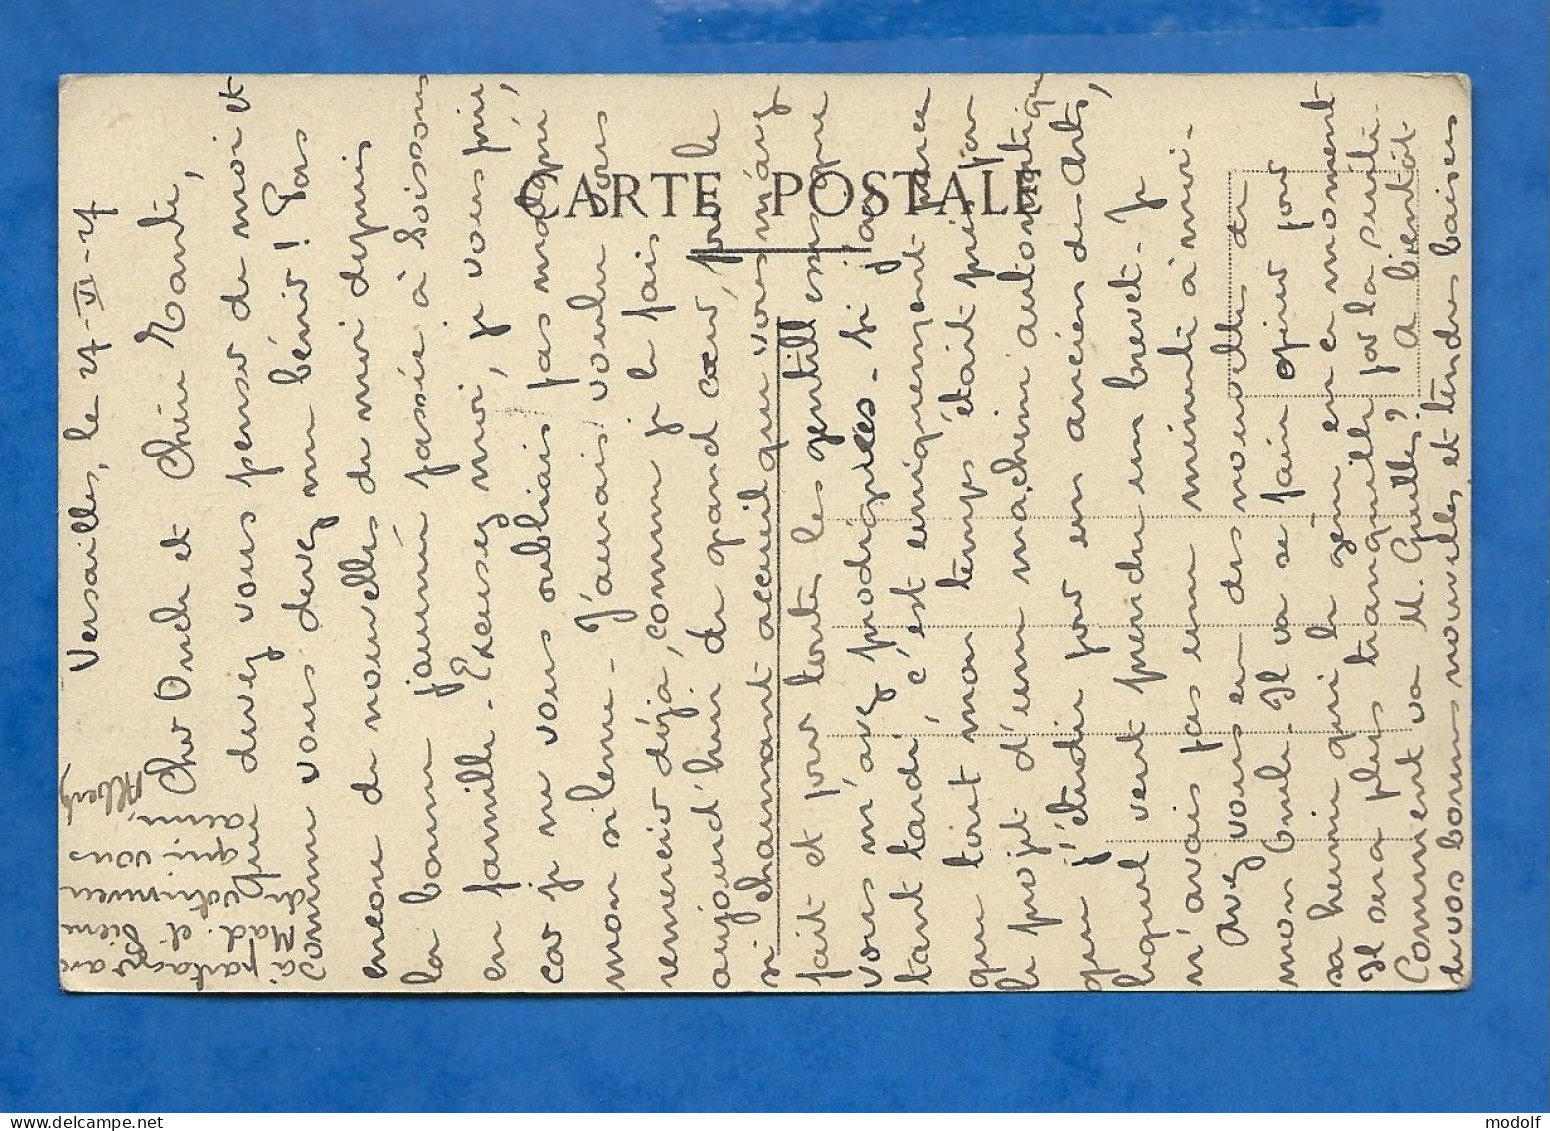 CARTE POSTALE
Versailles, le 27-VI-27
Cher Oncle et Chère Tante,
Que devez vous penser de moi et
comme vous devez me bénir ! Pas
encore de nouvelles de moi depuis
la bonne journée passée à Soissons
en famille - Excusez moi, je vous prie,
car je ne vous oubliais pas malgré
mon silence - J'aurais voulu vous
remercier déjà, comme je le fais
aujourd'hui de grand cœur, pour le
si charmant accueil que vous m'avez
fait et pour toutes les gentillesses que
vous m'avez prodiguées - Si j'ai
tant tardé, c'est uniquement parce
que tout mon temps était pris par
le projet d'une machine automatique
que j'étudie pour un ancien des Arts,
lequel veut prendre un brevet - Je
n'avais pas une minute à moi -
Avez vous eu des nouvelles de
mon Oncle - Il va se faire opérer pour
sa hernie qui le gêne en ce moment
Il sera plus tranquille par la suite -
Comment va M. Guille ? A bientôt
de vos bonnes nouvelles et tendres baisers
à partager avec
Mad. et Pierre
de votre neveu
qui vous
aime,
Albert
modolf